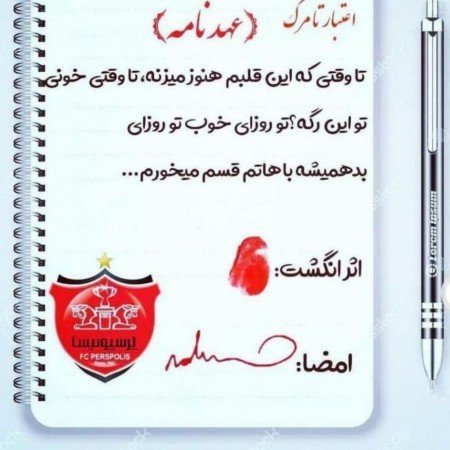 اعتبار تا مرگ
(عهدنامه)
تا وقتی که این قلبم هنوز میزنه، تا وقتی خونی
تو این رگه؟ تو روزای خوب تو روزای
بد همیشه باهاتم قسم میخورم...
اثر انگشت:
امضا:
پرسپولیس
FC PERSPOLIS
Lorem Ipsum